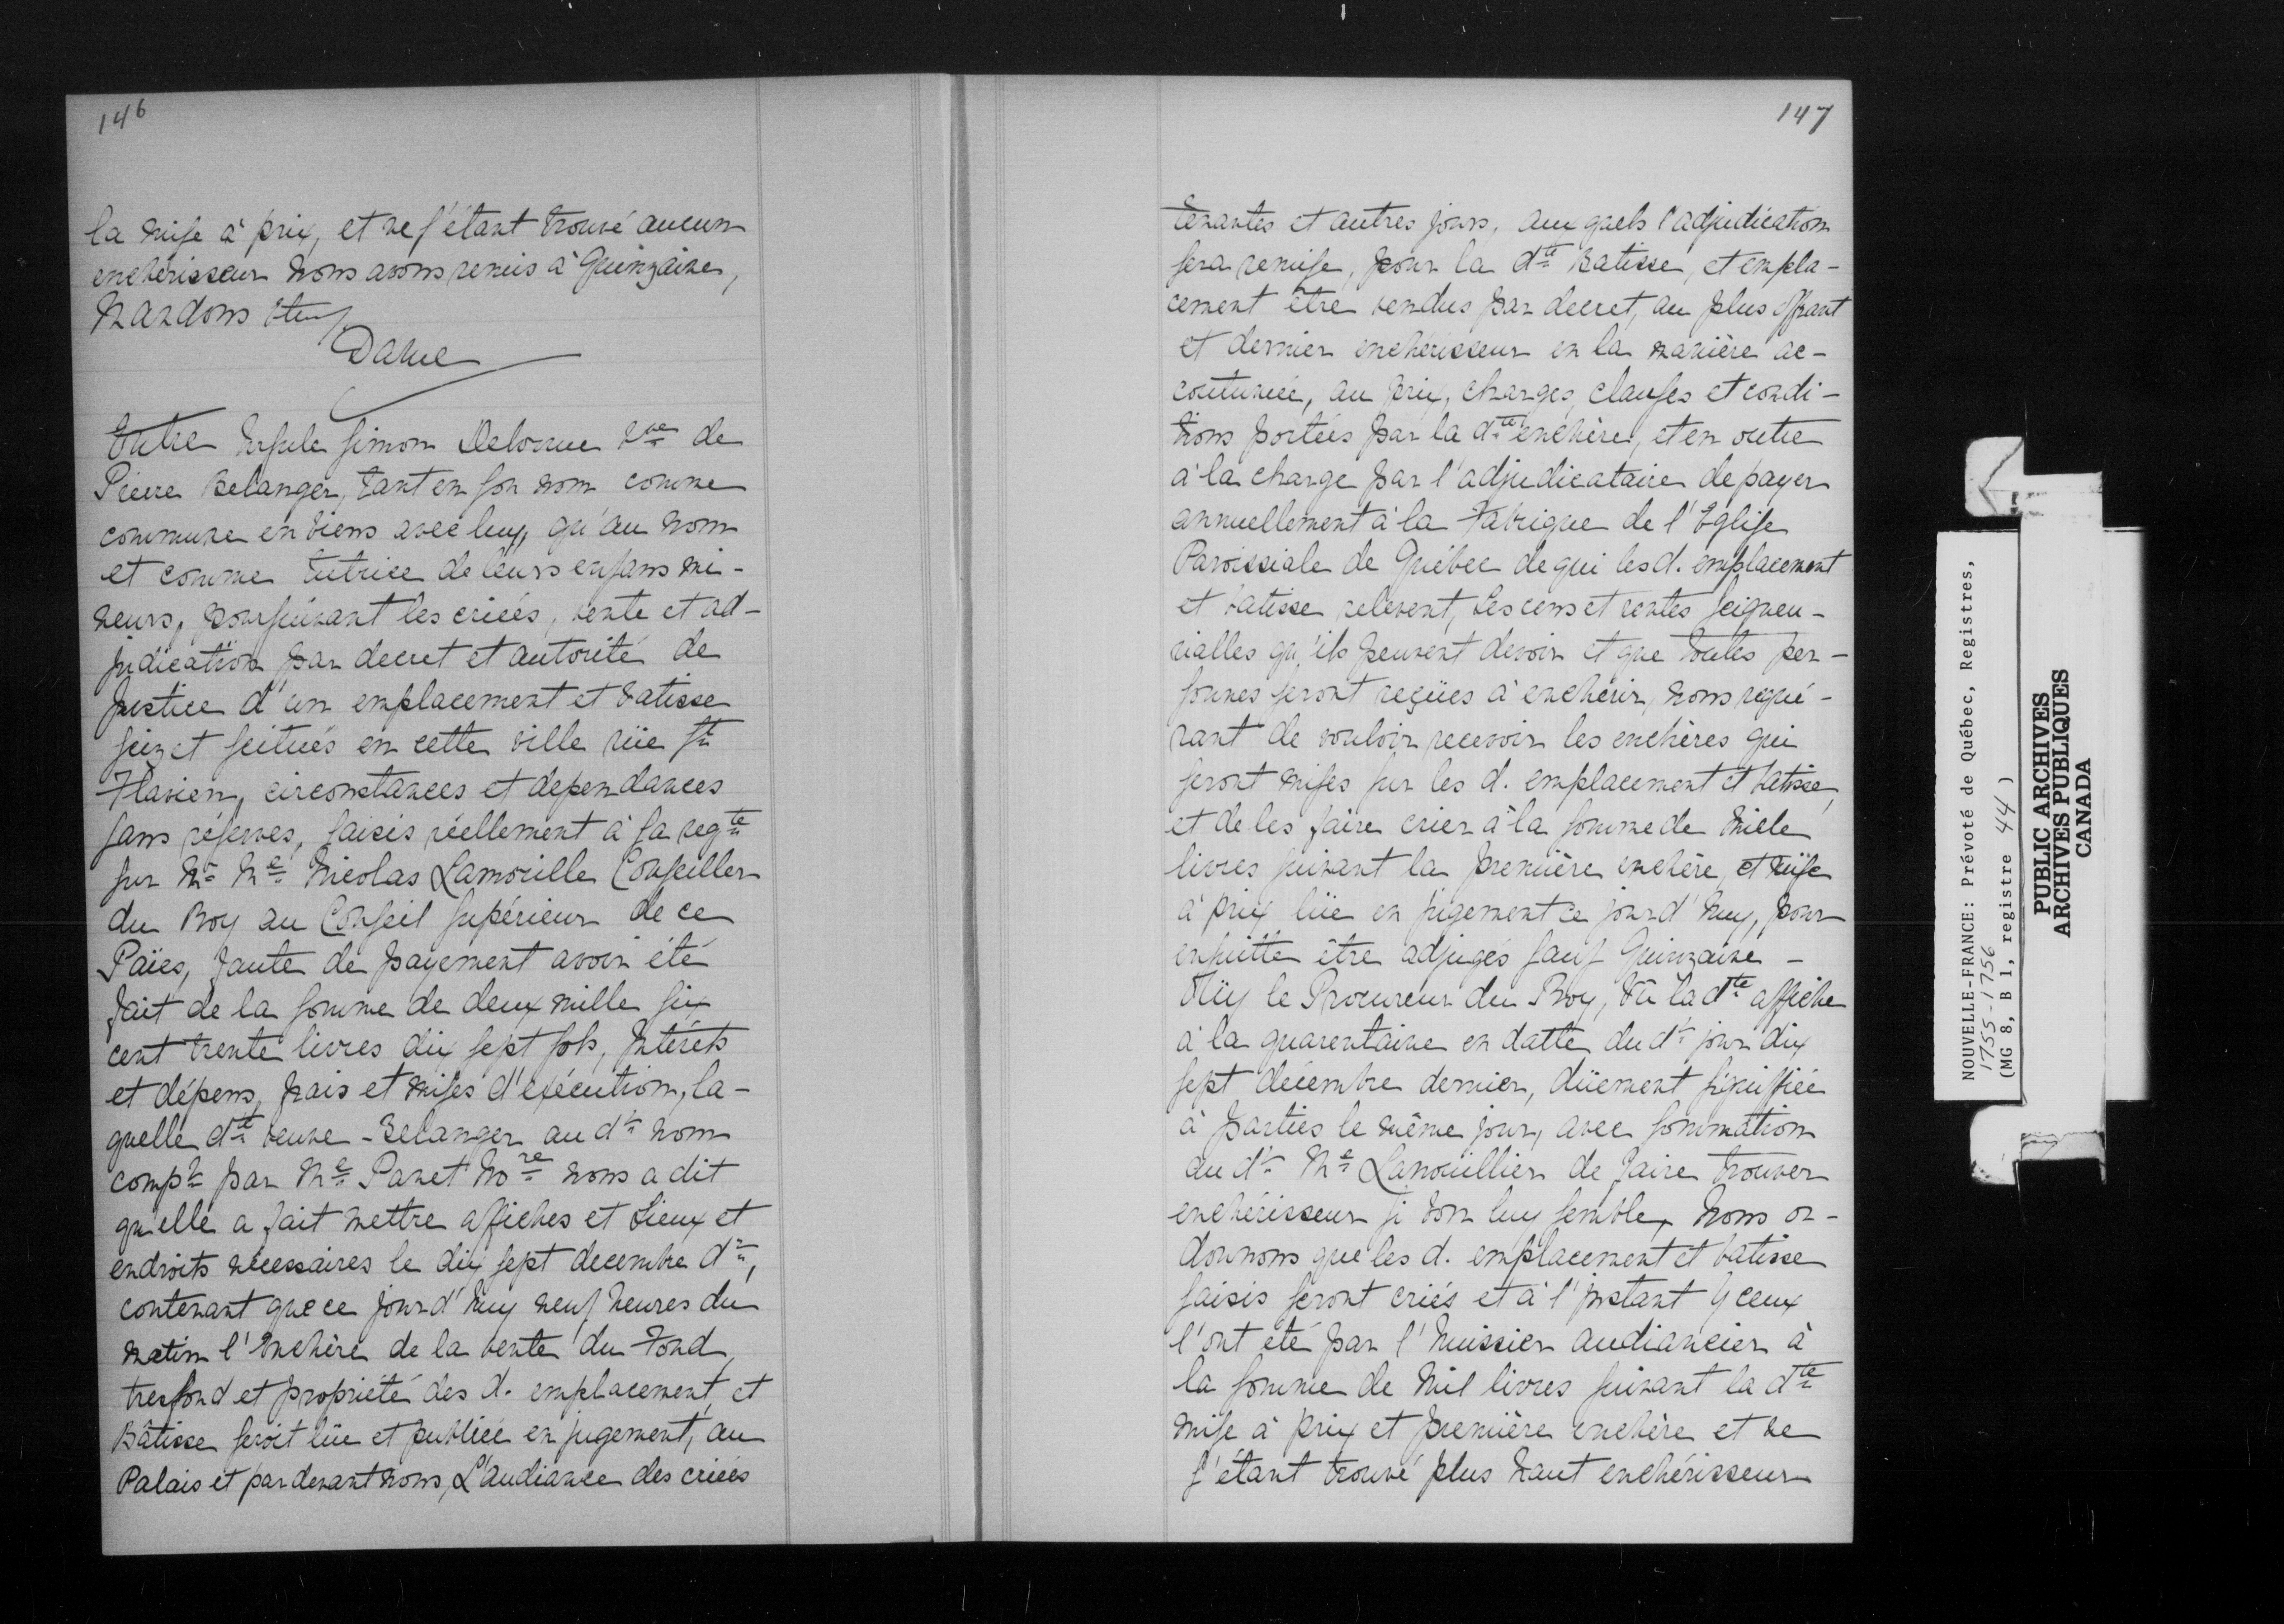 146
la mise à prix, et ne s'étant trouvé aucun
enchérisseur nous avons remis à Quinzaine,
Mandons &c
Daine
Entre Ursule Simon Delorme Vve de
Pierre Belanger, tant en son nom comme
commune en biens avec luy, qu'au nom
et comme tutrice de leurs enfans mi-
neurs, poursuivant les criées, vente et ad-
judication par decret et autorité de
Justice d'un emplacement et batisse
seizet scitués en cette ville rüe St
Flavien, circonstances et dependances
sans réserves, saisis réellement à sa reqte
sur Mr Me Nicolas Lanouille Conseiller
du Roy au Conseil supérieur de ce
Païes, faute de payement avoir été
fait de la somme de deux mille six
cent trente livres dix sept sols, Intérets
et dépens, frais et mises d'exécution, la-
quelle dte veuve Belanger au dt nom
compte par Me Panet Nore nous a dit
qu'elle a fait mettre affiches et Lieux et
endroits nécessaires le dix sept decembre dr,
contenant que ce jourd'huy neuf heures du
matin l'Enchère de la vente du Fond,
tresfond et propriété des d. emplacement, et
Bâtisse seroit lüe et publiée en jugement, au
Palais et pardevant nous, L'audiance des criées
147
tenantes et autres jours, aux quels l'adjudication
sera remise, pour la dte Batisse, et empla-
cement être vendus par decret, au plus offrant
et dernier enchérisseur en la manière ac-
coutumée, au prix, charges, clauses et condi-
tions portées par la dte enchère, et en outre
à la charge par l'adjudicataire de payer
annuellement à la Fabrique de l'Eglise
Paroissiale de Québec de qui les d. emplacement
et batisse relevent, Les cens et rentes seigneu-
rialles qu'ils peuvent devoir et que toutes per-
sonnes seront reçües à enchérir, nous requé-
rant de vouloir recevoir les enchères qui
seront mises sur les d. emplacement et batisse,
et de les faire crier à la somme de mille
livres suivant la première enchère, et mise
à prix lüe en jugement ce jourd'huy, pour
ensuitte être adjugés sauf Quinzaine -
Oüy le Procureur du Roy, Vû la dte affiche
à la quarentaine en datte du dt jour dix
sept décembre dernier, düement signiffiée
à parties le même jour, avec sommation
au dt Me Lanouillier de faire trouver
enchérisseur si bon luy semble, nous or-
donnons que les d. emplacement et batisse
saisis seront criés et à l'instant Yceux
l'ont été par l'huissier audiancier à
la somme de mil livres suivant la dte
mise à prix et première enchère et ne
s'étant trouvé plus haut enchérisseur
NOUVELLE-FRANCE: Prévoté de Québec, Registres,
1755-1756
(MG 8, B 1, registre 44)
PUBLIC ARCHIVES
ARCHIVES PUBLIQUES
CANADA